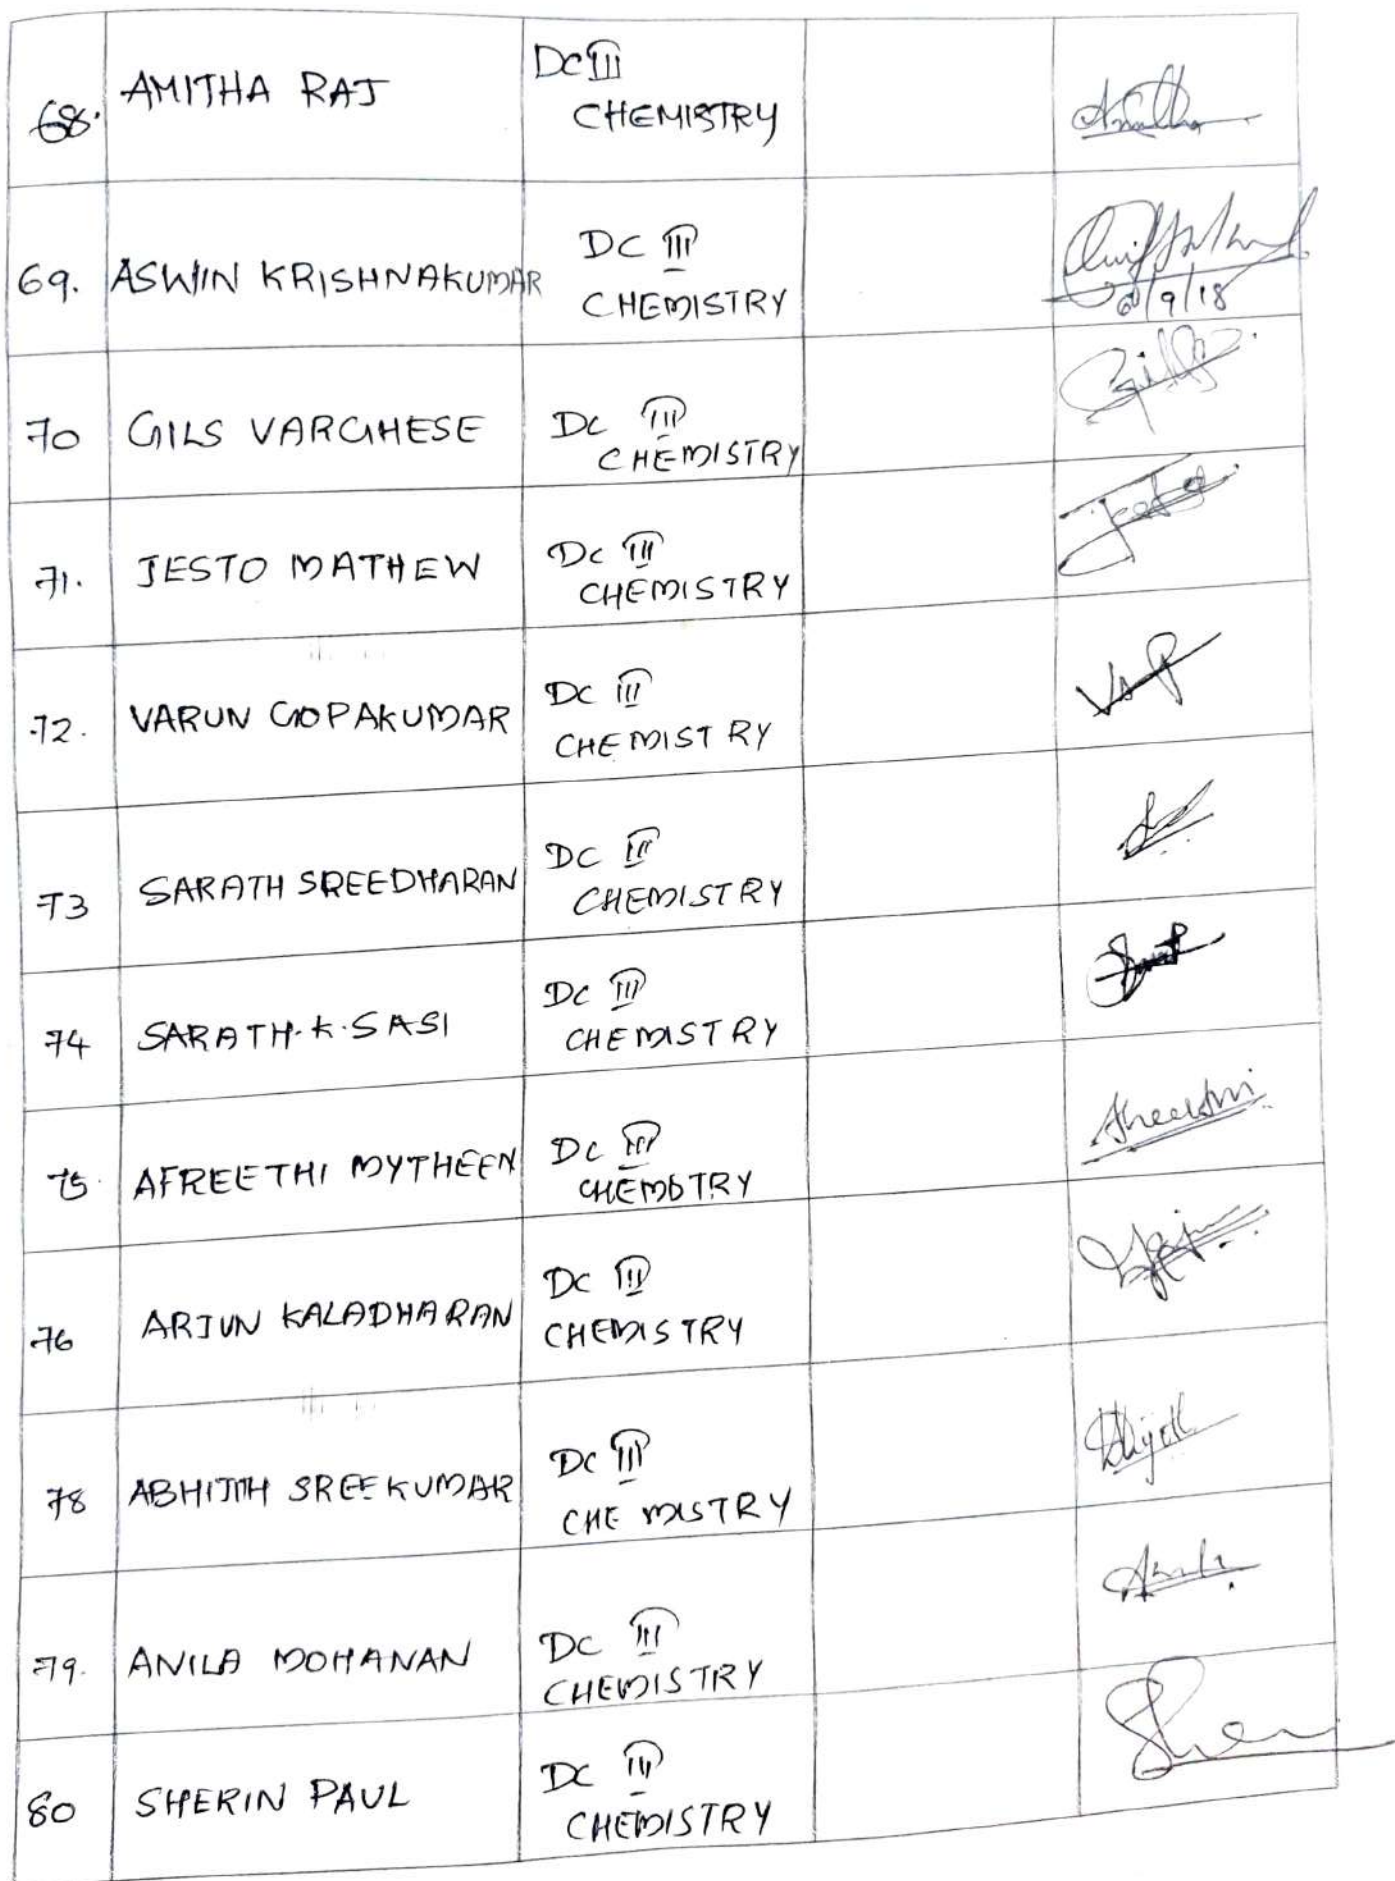 68. AMITHA RAJ DC III
CHEMISTRY Amitha
69. ASWIN KRISHNAKUMAR DC III
CHEMISTRY
6/9/18
70 GILS VARGHESE DC III
CHEMISTRY
71. JESTO MATHEW DC III
CHEMISTRY Jesto
72. VARUN GOPAKUMAR DC III
CHEMISTRY
73 SARATH SREEDHARAN DC III
CHEMISTRY
74 SARATH.K.SASI DC III
CHEMISTRY
75. AFREETHI MYTHEEN DC III
CHEMISTRY
76 ARJUN KALADHARAN DC III
CHEMISTRY
78 ABHIJITH SREEKUMAR DC III
CHEMISTRY
79. ANILA MOHANAN DC III
CHEMISTRY
80 SHERIN PAUL DC III
CHEMISTRY